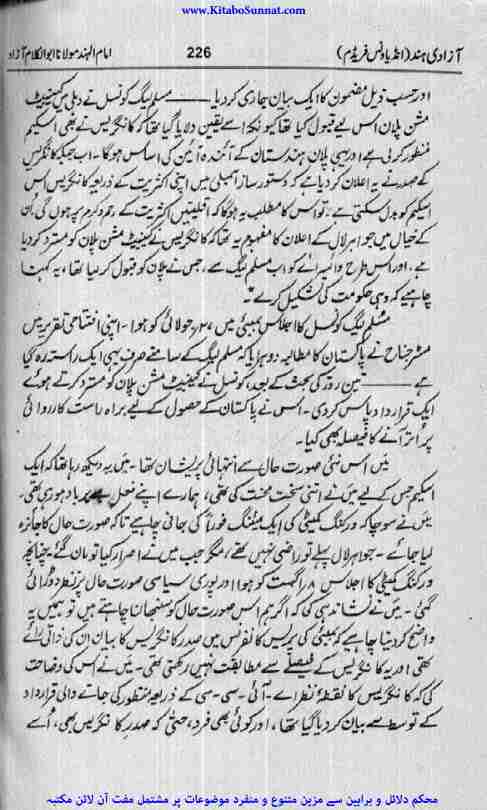 www.KitaboSunnat.com
آزادی ہند (انڈیا ونس فریڈم) 226 امام الہند مولانا ابوالکلام آزاد
اور حسب ذیل مضمون کا ایک بیان جاری کر دیا ——— مسلم لیگ کونسل نے دہلی میں کیبنیٹ
مشن پلان اس لیے قبول کیا تھا کیونکہ اسے یقین دلایا گیا تھا کہ کانگریس نے بھی اسکیم
منظور کر لی ہے اور یہی پلان ہندستان کے آئندہ آئین کی اساس ہوگا۔ اب جبکہ کانگریس
کے صدر نے یہ اعلان کر دیا ہے کہ دستور ساز اسمبلی میں اپنی اکثریت کے ذریعہ کانگریس اس
اسکیم کو بدل سکتی ہے۔ تو اس کا مطلب یہ ہوگا کہ اقلیتیں اکثریت کے رحم و کرم پر ہوں گی۔ ان
کے خیال میں جواہر لال کے اعلان کا مفہوم یہ تھا کہ کانگریس نے کیبنیٹ مشن پلان کو مسترد کر دیا
ہے۔ اور اس طرح وائسرائے کو اب مسلم لیگ سے، جس نے پلان کو قبول کر لیا تھا، یہ کہنا
چاہیے کہ وہی حکومت کی تشکیل کرے"۔
مسلم لیگ کونسل کا اجلاس بمبئی میں ۲۷؍ جولائی کو ہوا۔ اپنی افتتاحی تقریر میں
مسٹر جناح نے پاکستان کا مطالبہ دوہرایا کہ مسلم لیگ کے سامنے صرف یہی ایک راستہ رہ گیا
ہے ——— تین روز کی بحث کے بعد، کونسل نے کیبنیٹ مشن پلان کو مسترد کرتے ہوئے
ایک قرارداد پاس کر دی۔ اس نے پاکستان کے حصول کے لیے براہ راست کارروائی
پر اتر آنے کا فیصلہ بھی کیا۔
میں اس نئی صورت حال سے انتہائی پریشان تھا۔ میں یہ دیکھ رہا تھا کہ ایک
اسکیم جس کے لیے میں نے اتنی سخت محنت کی تھی، ہمارے اپنے فعل سے برباد ہو رہی تھی۔
میں نے سوچا کہ ورکنگ کمیٹی کی ایک میٹنگ فوراً کی جانی چاہیے تاکہ صورت حال کا جائزہ
لیا جائے۔ جواہر لال پہلے تو راضی نہیں تھے، مگر جب میں نے اصرار کیا تو مان گئے۔ چنانچہ
ورکنگ کمیٹی کا اجلاس ۸؍ اگست کو ہوا اور پوری سیاسی صورت حال پر نظر دوڑائی
گئی۔ میں نے نشاندہی کی کہ اگر ہم اس صورت حال کو سنبھالنا چاہتے ہیں تو ہمیں یہ
واضح کر دینا چاہیے کہ بمبئی کی پریس کانفرنس میں صدر کانگریس کا بیان ان کی ذاتی رائے
تھی اور یہ کانگریس کے فیصلے سے مطابقت نہیں رکھتی تھی۔ میں نے اس کی وضاحت
کی کہ کانگریس کا نقطۂ نظر اے۔ آئی۔ سی۔ سی کے ذریعہ منظور کی جانے والی قرارداد
کے توسط سے بیان کر دیا گیا تھا، اور کوئی بھی فرد، حتیٰ کہ صدر کانگریس بھی، اسے
محکم دلائل و براہین سے مزین متنوع و منفرد موضوعات پر مشتمل مفت آن لائن مکتبہ